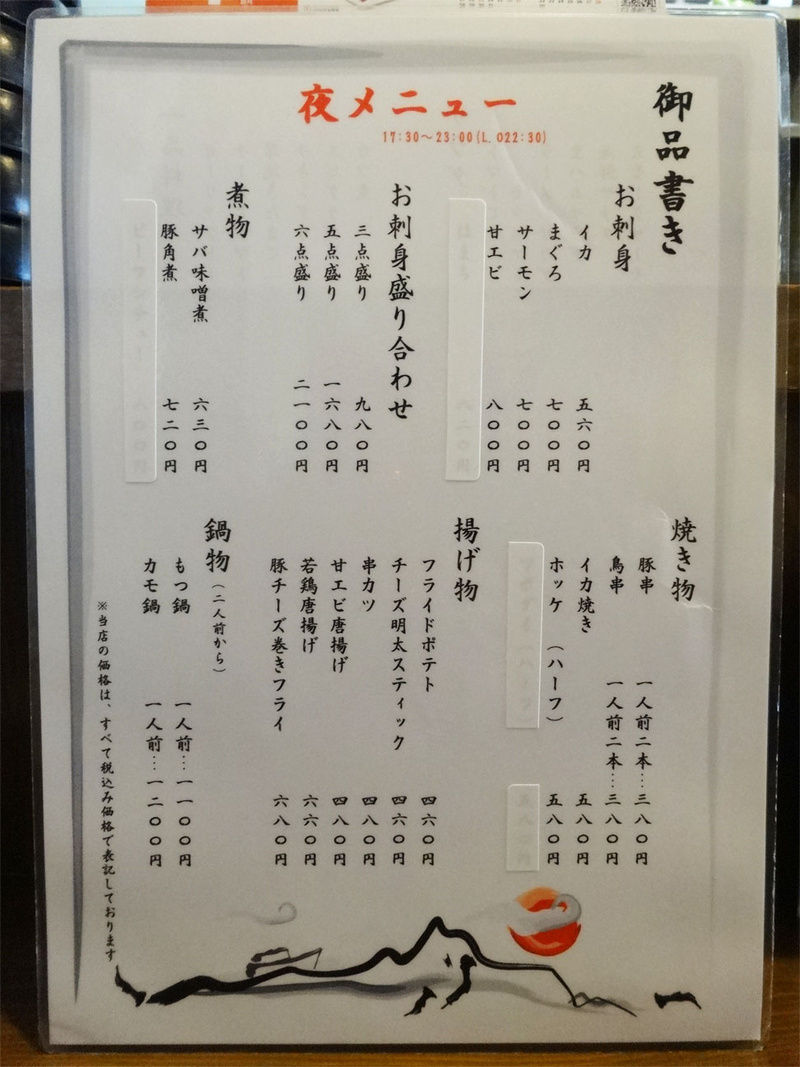 御品書き
夜メニュー
17:30～23:00(L.O22:30)
お刺身
イカ 五六〇円
まぐろ 七〇〇円
サーモン 七〇〇円
甘エビ 八〇〇円
お刺身盛り合わせ
三点盛り 九八〇円
五点盛り 一六八〇円
六点盛り 二一〇〇円
煮物
サバ味噌煮 六三〇円
豚角煮 七二〇円
焼き物
豚串 一人前二本…三八〇円
鳥串 一人前二本…三八〇円
イカ焼き 五八〇円
ホッケ（ハーフ） 五八〇円
揚げ物
フライドポテト 四六〇円
チーズ明太スティック 四六〇円
串カツ 四八〇円
甘エビ唐揚げ 四八〇円
若鶏唐揚げ 六六〇円
豚チーズ巻きフライ 六八〇円
鍋物（二人前から）
もつ鍋 一人前…一一〇〇円
カモ鍋 一人前…一二〇〇円
※当店の価格は、すべて税込み価格で表記しております